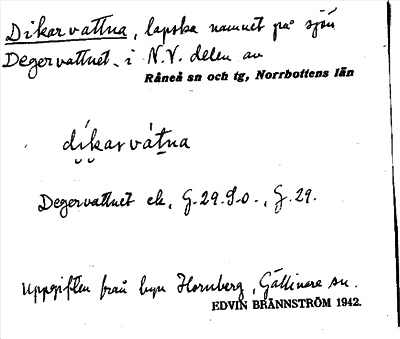 Dikarvattna, lapska namnet på sjön
Degervattnet i N.V. delen av
Råneå sn och tg, Norrbottens län
díkarvátna
Degervattnet ek, G.29.S-o., J.29.
Uppgiften från byn Hornberg, Gällivare sn.
EDVIN BRÄNNSTRÖM 1942.